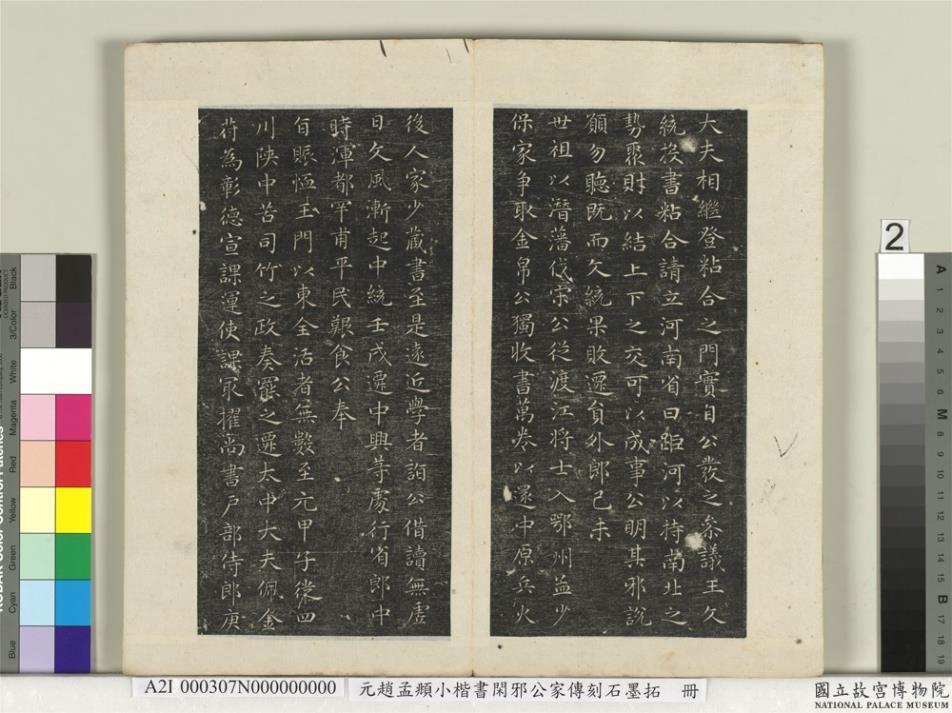 大夫相繼登粘合之門實自公發之參議王文
統投書粘合請立河南省曰距河以持南北之
勢聚財以結上下之交可以成事公明其邪說
願勿聽既而文統果敗遷負外郎己未
世祖以潛藩伐宋公從渡江將士入鄂州益少
保家爭取金帛公獨收書萬卷以還中原兵火
後人家少藏書至是遠近學者詣公借讀無虛
日文風漸起中統壬戌遷中興等處行省郎中
時渾都罕甫平民艱食公奉
旨賑恤玉門以東全活者無數至元甲子從四
川陝中苦司竹之政奏罷之遷太中大夫佩金
符為彰德宣課運使課冣擢尚書戶部侍郎庚
2
A2I 000307N000000000
元趙孟頫小楷書閑邪公家傳刻石墨拓 冊
國立故宮博物院
NATIONAL PALACE MUSEUM
Black
3/Color
White
Magenta
Red
Yellow
Green
Cyan
Blue
A
1
2
3
4
5
6
M
8
9
10
11
12
13
14
15
B
17
18
19